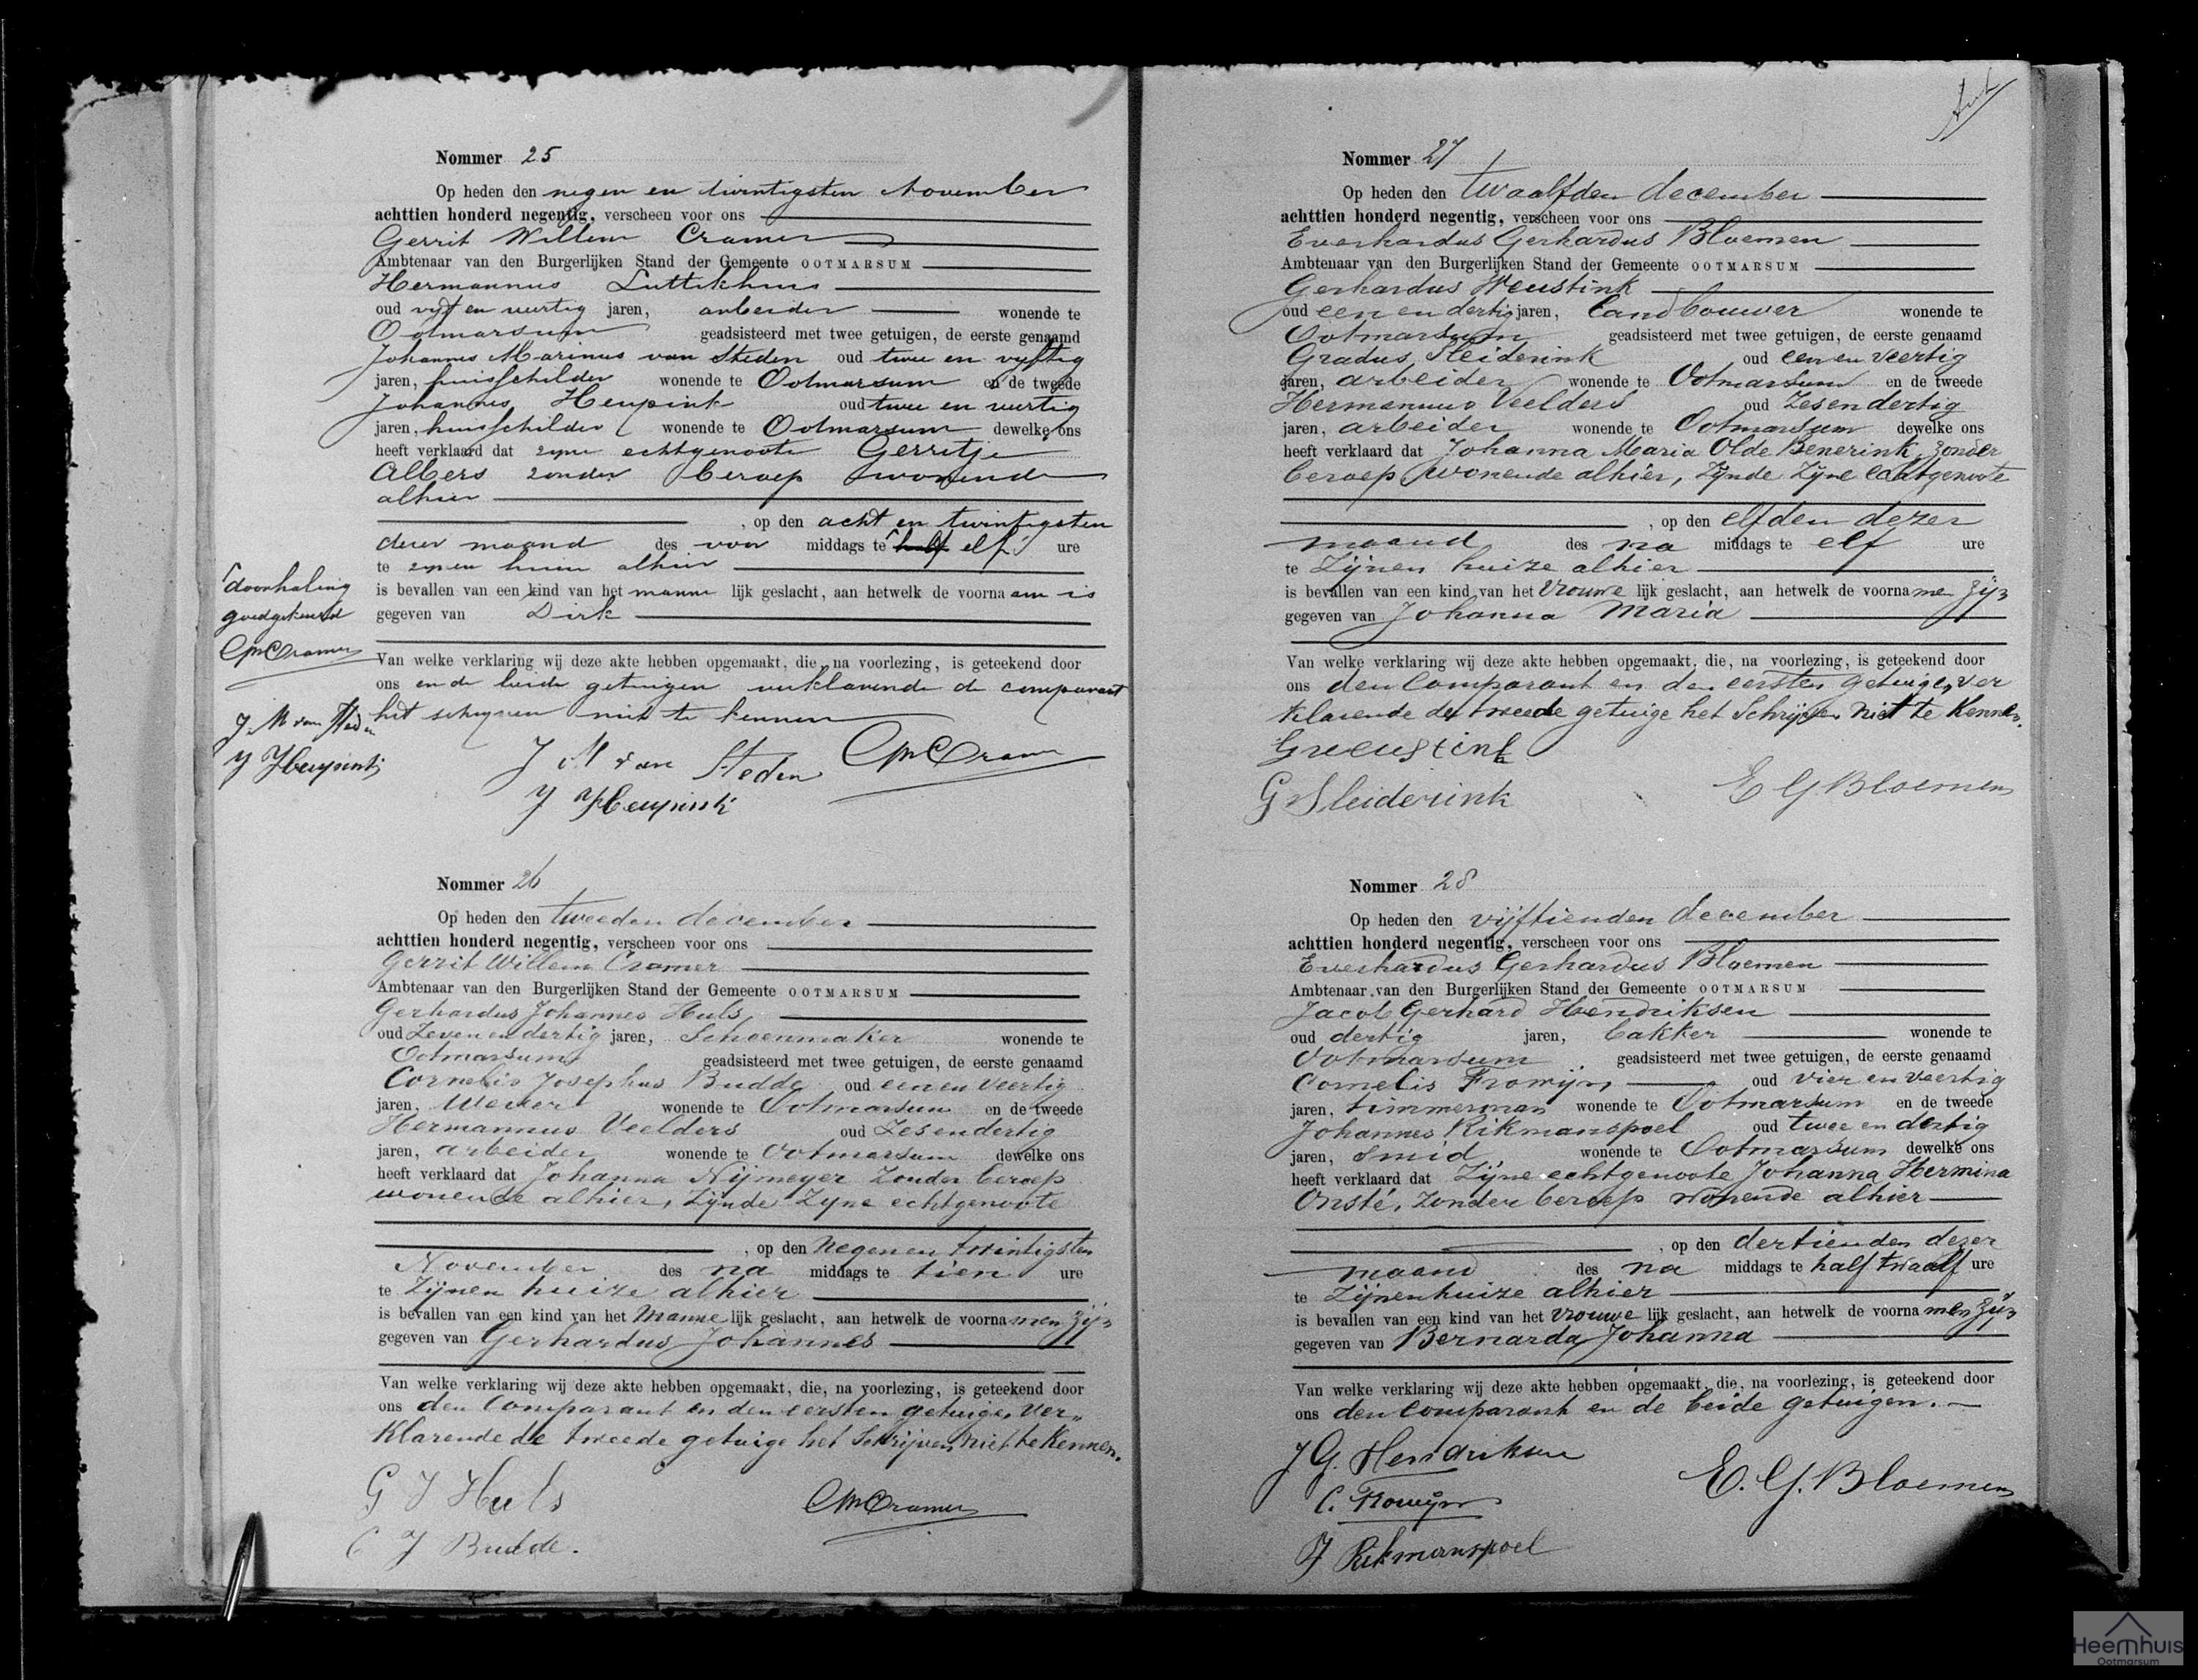 Nommer 25
Op heden den negen en twintigsten November
achttien honderd negentig, verscheen voor ons
Gerrit Willem Cramer
Ambtenaar van den Burgerlijken Stand der Gemeente OOTMARSUM
Hermannus Luttikhuis
oud vijf en veertig jaren, arbeider wonende te
Ootmarsum geadsisteerd met twee getuigen, de eerste genaamd
Johannes Marinus van Steden oud twee en vijftig
jaren, huisschilder wonende te Ootmarsum en de tweede
Johannes Heupink oud twee en veertig
jaren, huisschilder wonende te Ootmarsum dewelke ons
heeft verklaard dat zijne echtgenoote Gerritje
Albers zonder beroep wonende
alhier
, op den acht en twintigsten
dezer maand des voor middags te half elf ure
te zijnen huize alhier
is bevallen van een kind van het manne lijk geslacht, aan hetwelk de voorna am is
gegeven van Dirk
doorhaling
goedgekeurd
GWCramer
J. M van Steden
J Heupink
Van welke verklaring wij deze akte hebben opgemaakt, die, na voorlezing, is geteekend door
ons en de beide getuigen verklarende de comparant
het schrijven niet te kennen
J M van Steden GWCramer
J Heupink
Nommer 26
Op heden den tweeden december
achttien honderd negentig, verscheen voor ons
Gerrit Willem Cramer
Ambtenaar van den Burgerlijken Stand der Gemeente OOTMARSUM
Gerhardus Johannes Huls
oud Zeven en dertig jaren, Schoenmaker wonende te
Ootmarsum geadsisteerd met twee getuigen, de eerste genaamd
Cornelis Josephus Budde oud een en veertig
jaren, Wever wonende te Ootmarsum en de tweede
Hermannus Veelders oud Zesendertig
jaren, arbeider wonende te Ootmarsum dewelke ons
heeft verklaard dat Johanna Nijmeyer Zonder beroep
wonende alhier, Zijnde Zijne echtgenoote
, op den negen en twintigsten
November des na middags te tien ure
te Zijnen huize alhier
is bevallen van een kind van het Manne lijk geslacht, aan hetwelk de voorna men Zijn
gegeven van Gerhardus Johannes
Van welke verklaring wij deze akte hebben opgemaakt, die, na voorlezing, is geteekend door
ons den Comparant en den eersten getuige, ver„
Klarende de tweede getuige het Schrijven niet te Kennen.
G J Huls GWCramer
C J Budde.
Nommer 27
Op heden den twaalfden december
achttien honderd negentig, verscheen voor ons
Everhardus Gerhardus Bloemen
Ambtenaar van den Burgerlijken Stand der Gemeente OOTMARSUM
Gerhardus Weustink
oud een en dertig jaren, landbouwer wonende te
Ootmarsum geadsisteerd met twee getuigen, de eerste genaamd
Gradus Sleiderink oud een en veertig
jaren, arbeider wonende te Ootmarsum en de tweede
Hermannus Veelders oud Zesendertig
jaren, arbeider wonende te Ootmarsum dewelke ons
heeft verklaard dat Johanna Maria Olde Benerink, Zonder
beroep wonende alhier, Zijnde Zijne echtgenoote
, op den elfden dezer
maand des na middags te elf ure
te Zijnen huize alhier
is bevallen van een kind van het Vrouwe lijk geslacht, aan hetwelk de voorna men Zijn
gegeven van Johanna Maria
Van welke verklaring wij deze akte hebben opgemaakt, die, na voorlezing, is geteekend door
ons den Comparant en den eersten getuige, ver
Klarende de tweede getuige het Schrijven niet te Kennen.
G Weustink
G Sleiderink E G Bloemen
Nommer 28
Op heden den vijftienden december
achttien honderd negentig, verscheen voor ons
Everhardus Gerhardus Bloemen
Ambtenaar van den Burgerlijken Stand der Gemeente OOTMARSUM
Jacob Gerhard Hendriksen
oud dertig jaren, bakker wonende te
Ootmarsum geadsisteerd met twee getuigen, de eerste genaamd
Cornelis Frowijn oud vier en veertig
jaren, timmerman wonende te Ootmarsum en de tweede
Johannes Rikmanspoel oud twee en dertig
jaren, Smid, wonende te Ootmarsum dewelke ons
heeft verklaard dat Zijne echtgenoote Johanna Hermina
Onsté, Zonder beroep wonende alhier
, op den dertienden dezer
maand des na middags te half twaalf ure
te Zijnen huize alhier
is bevallen van een kind van het Vrouwe lijk geslacht, aan hetwelk de voorna men Zijn
gegeven van Bernarda Johanna
Van welke verklaring wij deze akte hebben opgemaakt, die, na voorlezing, is geteekend door
ons den Comparant en de beide getuigen.
J G. Hendriksen
C. Frowijn E. G. Bloemen
J Rikmanspoel
Heemhuis
Ootmarsum